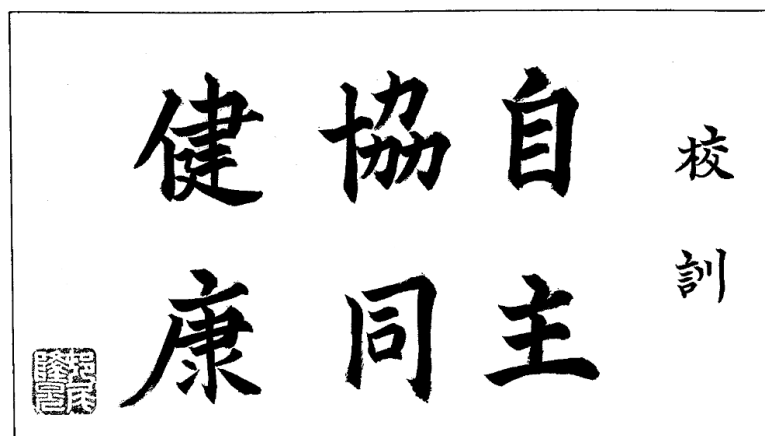 校訓
自主
協同
健康